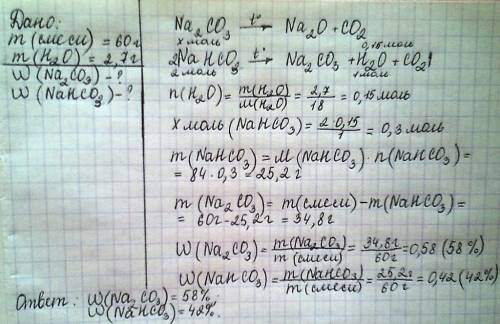 Дано:
m (смеси) = 60г
m(H₂O) = 2,7г
W (Na₂CO₃) - ?
W (NaHCO₃) - ?
Na₂CO₃ t° → Na₂O + CO₂
x моль
0,15 моль
2NaHCO₃ t° → Na₂CO₃ + H₂O + CO₂↑
2 моль 1 моль
n(H₂O) = m(H₂O)/M(H₂O) = 2,7/18 = 0,15 моль
X моль (NaHCO₃) = 2·0,15/1 = 0,3 моль
m(NaHCO₃) = M(NaHCO₃)·n(NaHCO₃) =
= 84·0,3 = 25,2г
m (Na₂CO₃) = m(смеси) - m(NaHCO₃) =
= 60г - 25,2г = 34,8г
W(Na₂CO₃) = m(Na₂CO₃)/m(смеси) = 34,8г/60г = 0,58 (58%)
W(NaHCO₃) = m(NaHCO₃)/m(смеси) = 25,2г/60г = 0,42 (42%)
Ответ: W(Na₂CO₃) = 58%,
W(NaHCO₃) = 42%.